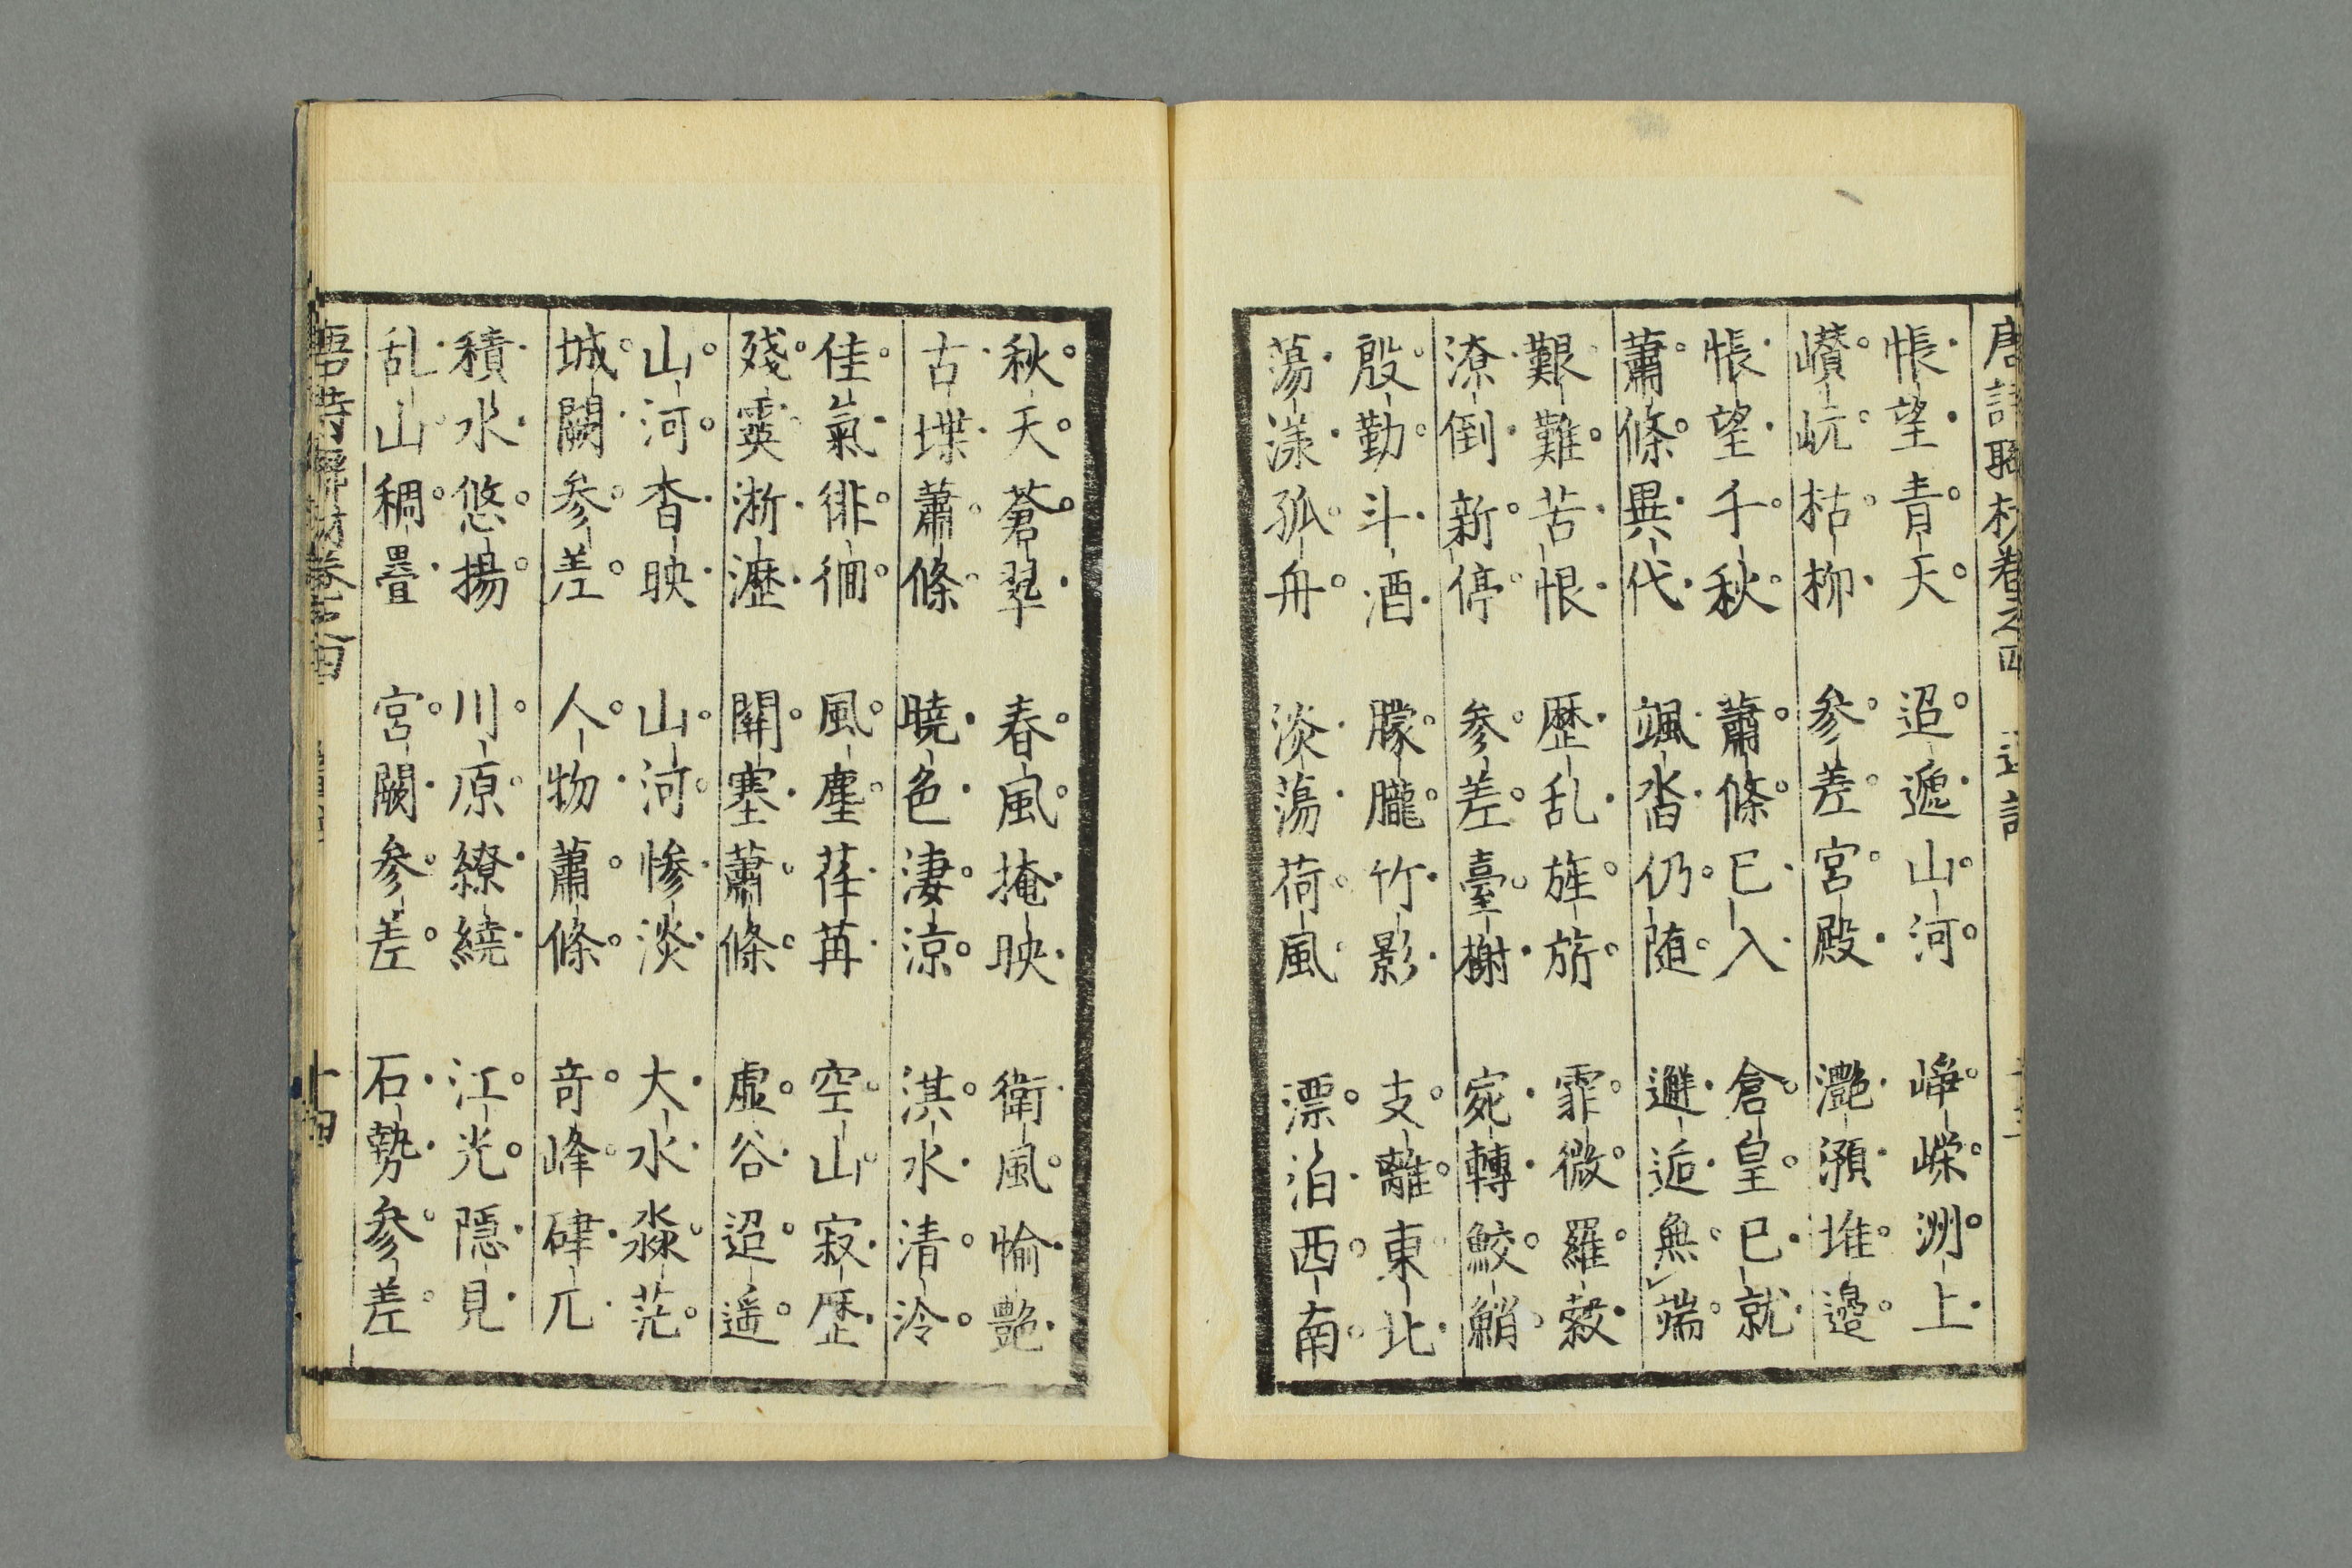 唐詩聯材卷之四
悵望青天 迢遞山河 崢嶸洲上
巑岏枯柳 參差宮殿 灧澦堆邊
悵望千秋 蕭條已入 倉皇已就
蕭條異代 颯沓仍随 邂逅無端
艱難苦恨 歷乱旌旂 霏微羅縠
潦倒新停 參差臺榭 宛轉鮫鮹
殷勤斗酒 朦朧竹影 支離東北
蕩漾孤舟 淡蕩荷風 漂泊西南
秋天蒼翠 春風掩映 衛風愉艷
古堞蕭條 曉色淒涼 淇水清泠
佳氣徘徊 風塵荏苒 空山寂歷
殘霙淅瀝 關塞蕭條 虛谷迢遥
山河杳映 山河慘淡 大水淼茫
城闕參差 人物蕭條 奇峰硉兀
積水悠揚 川原繚繞 江光隱見
乱山稠疊 宮闕參差 石勢參差
十四